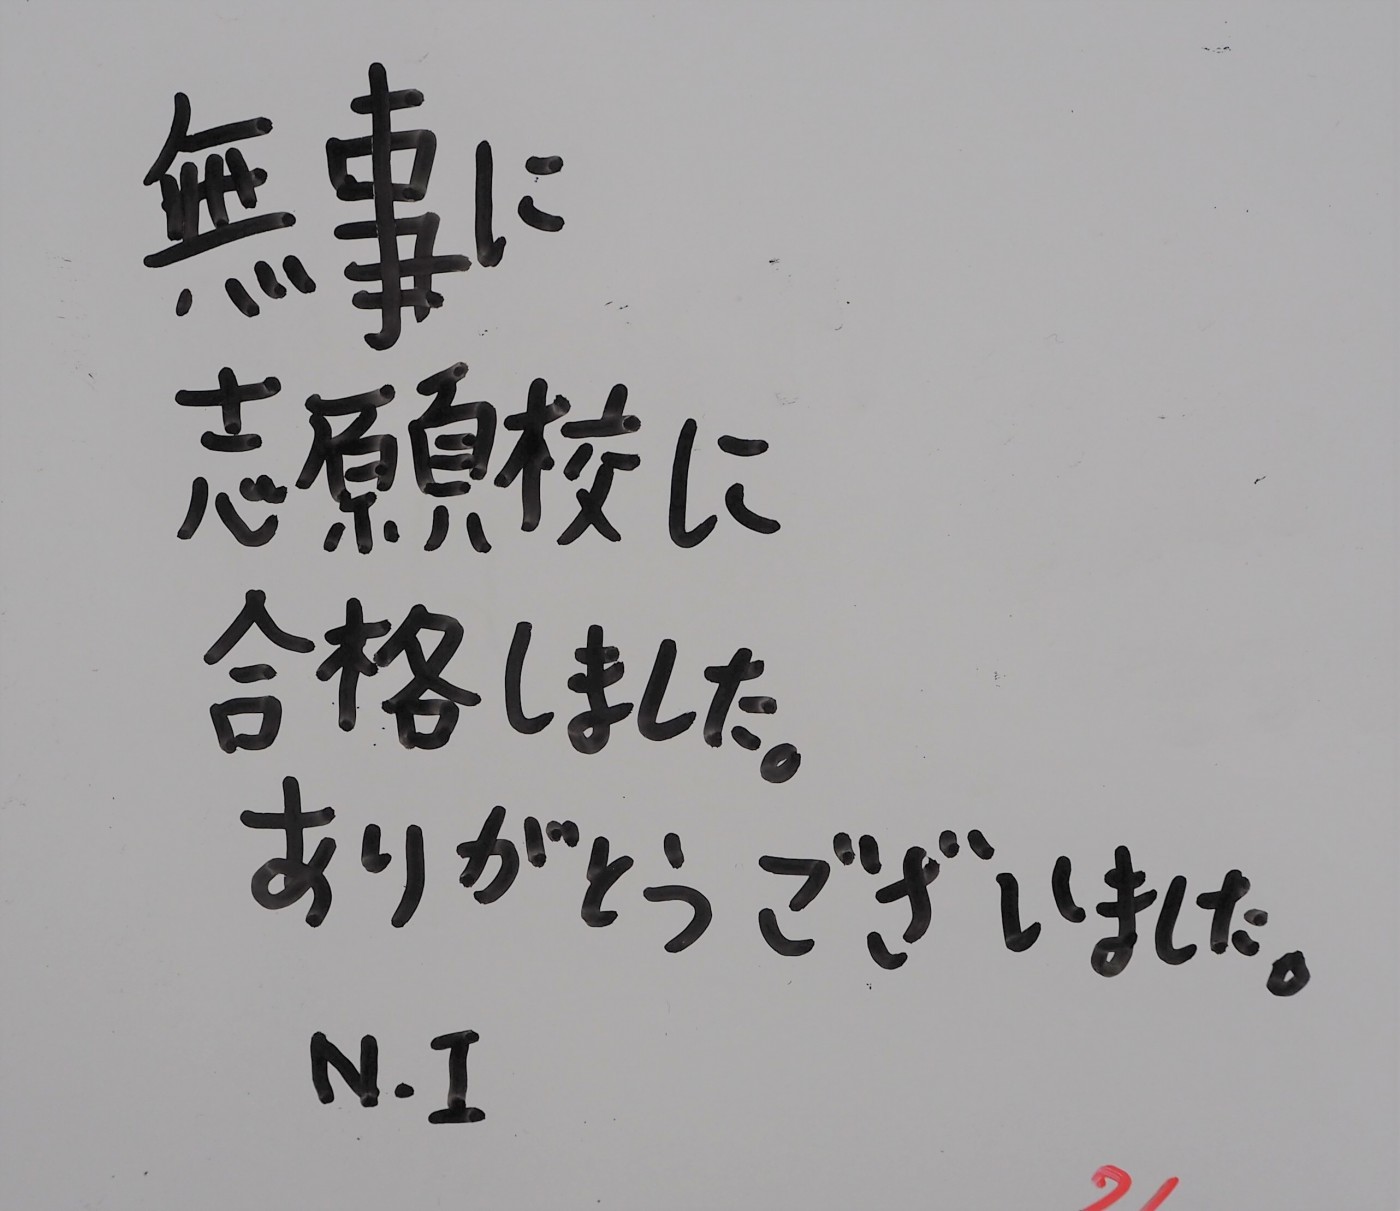 無事に
志願校に
合格しました。
ありがとうございました。
N.I